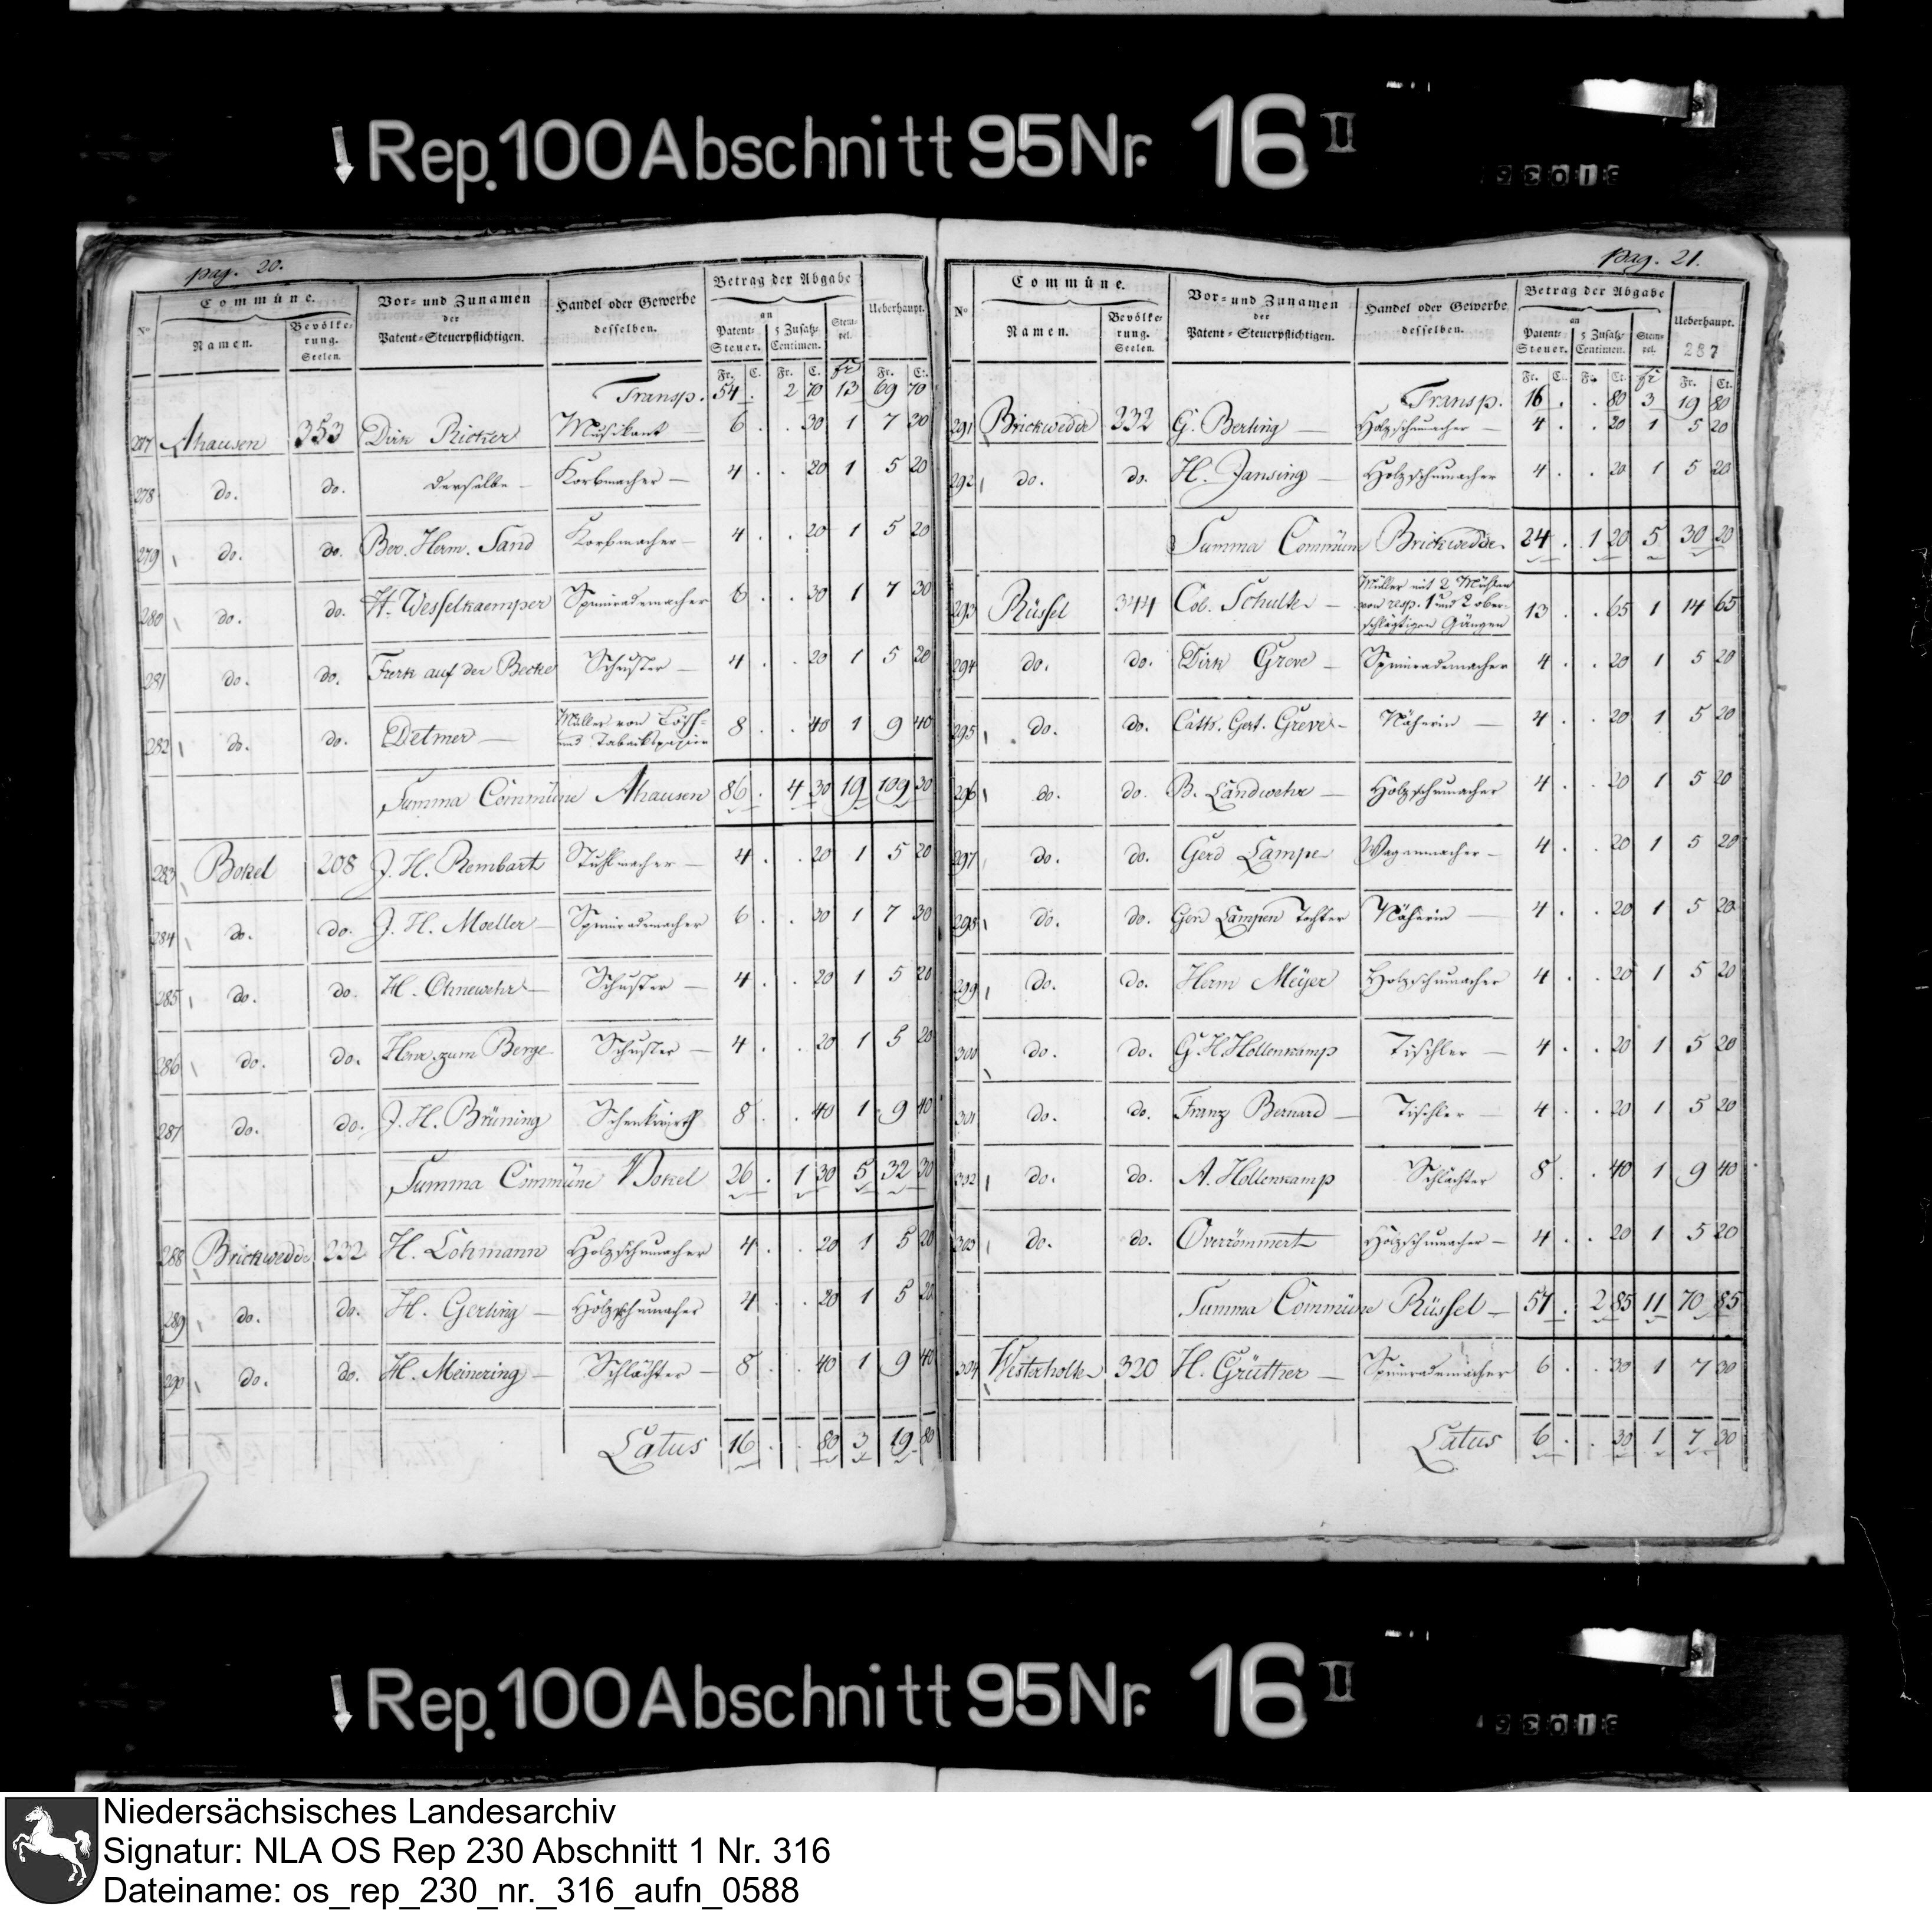 Rep. 100 Abschnitt 95 Nr. 16 II
pag. 20.
No
Commüne.
Namen.
Bevölkerung. Seelen.
Vor- und Zunamen der Patent-Steuerpflichtigen.
Handel oder Gewerbe desselben.
Betrag der Abgabe
an
Patent-Steuer.
5 Zusatz-Centimen.
Stempel.
Ueberhaupt.
Fr. C. Fr. C. fr Fr. Ct.
Transp. 54 . 2 70 13 69 70
277 Ahausen 353 Dirk Ricker Musikant 6 . . 30 1 7 30
278 do. do. Derselbe Korbmacher 4 . . 20 1 5 20
279 do. do. Ber. Herm. Sand Korbmacher 4 . . 20 1 5 20
280 do. do. H. Wesselkaemper Spinnrademacher 6 . . 30 1 7 30
281 do. do. Frerk auf der Becke Schuster 4 . . 20 1 5 20
282 do. do. Detmer Müller von Lösch-
und Tabackspapier 8 . . 40 1 9 40
Summa Commüne Ahausen 86 . 4 30 19 109 30
283 Bokel 208 J. H. Rembart Stuhlmacher 4 . . 20 1 5 20
284 do. do. J. H. Moeller Spinnrademacher 6 . . 30 1 7 30
285 do. do. H. Ohnewehr Schuster 4 . . 20 1 5 20
286 do. do. Henr. zum Berge Schuster 4 . . 20 1 5 20
287 do. do. J. H. Brüning Schenkwirth 8 . . 40 1 9 40
Summa Commüne Bokel 26 . 1 30 5 32 30
288 Brickwedde 232 H. Lohmann Holzschumacher 4 . . 20 1 5 20
289 do. do. H. Gerling Holzschumacher 4 . . 20 1 5 20
290 do. do. H. Meinering Schlächter 8 . . 40 1 9 40
Latus 16 . . 80 3 19 80
pag. 21.
No
Commüne.
Namen.
Bevölkerung. Seelen.
Vor- und Zunamen der Patent-Steuerpflichtigen.
Handel oder Gewerbe desselben.
Betrag der Abgabe
an
Patent-Steuer.
5 Zusatz-Centimen.
Stempel.
Ueberhaupt.
287
Fr. C. Fr. Ct. fr Fr. Ct.
Transp. 16 . . 80 3 19 80
291 Brickwedde 232 G. Berling Holzschumacher 4 . . 20 1 5 20
292 do. do. H. Jansing Holzschumacher 4 . . 20 1 5 20
Summa Commüne Brickwedde. 24 . 1 20 5 30 20
293 Rüssel 344 Col. Schulte Müller mit 2 Mühlen
von resp. 1 und 2 ober-
schlägtigen Gängen 13 . . 65 1 14 65
294 do. do. Dirk Greve Spinnrademacher 4 . . 20 1 5 20
295 do. do. Cath. Gert. Greve Näherin 4 . . 20 1 5 20
296 do. do. B. Landwehr Holzschumacher 4 . . 20 1 5 20
297 do. do. Gerd Lampe Wagenmacher 4 . . 20 1 5 20
298 do. do. Gerd Lampen Tochter Näherin 4 . . 20 1 5 20
299 do. do. Herm Meÿer Holzschumacher 4 . . 20 1 5 20
300 do. do. G. H. Hollenkamp Tischler 4 . . 20 1 5 20
301 do. do. Franz Bernard Tischler 4 . . 20 1 5 20
302 do. do. A. Hollenkamp Schlächter 8 . . 40 1 9 40
303 do. do. Overrömmert Holzschumacher 4 . . 20 1 5 20
Summa Commüne Rüssel 57 . 2 85 11 70 85
304 Westerholte 320 H. Grüther Spinnrademacher 6 . . 30 1 7 30
Latus 6 . . 30 1 7 30
Rep. 100 Abschnitt 95 Nr. 16 II
Niedersächsisches Landesarchiv
Signatur: NLA OS Rep 230 Abschnitt 1 Nr. 316
Dateiname: os_rep_230_nr._316_aufn_0588